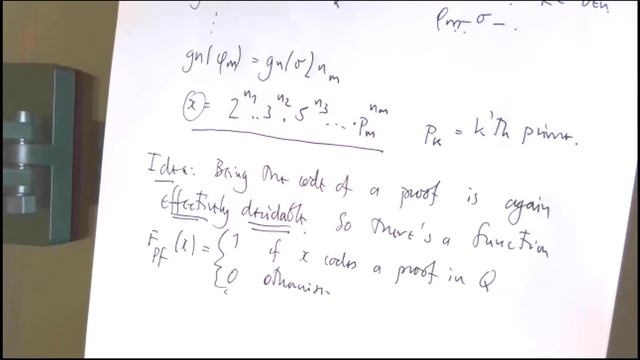 φm = σ
gn(φm) = gn(σ) = nm
x = 2^n1 · 3^n2 · 5^n3 · ... · pm^nm
pk = k'th prime.
Idea: Being the code of a proof is again
effectively decidable. So there's a function
Fpf(x) = { 1 if x codes a proof in Q
{ 0 otherwise